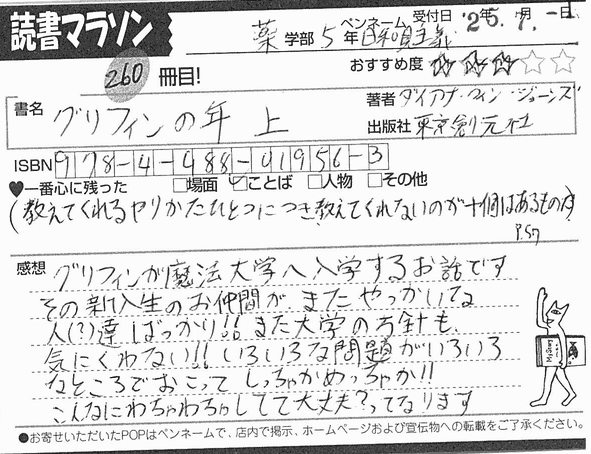 読書マラソン
薬 学部 5 年 ペンネーム 日和見主義 受付日 '25年.7.月-1日
260 冊目!
おすすめ度 ☆☆☆☆☆
書名 グリフィンの年 上
著者 ダイアナ・ウィン・ジョーンズ
出版社 東京創元社
ISBN 978-4-488-01956-3
♥一番心に残った □場面 ☑ことば □人物 □その他
(教えてくれるやりかたひとつにつき教えてくれないのが十個はあるものよ)
P.57
感想 グリフィンが魔法大学へ入学するお話です
その新入生のお仲間がまたやっかいな
人(?)達ばっかり!!また大学の方針も、
気にくわない!!いろいろな問題がいろいろ
なところでおこってしっちゃかめっちゃか!!
こんなにわちゃわちゃしてて大丈夫?ってなります
●お寄せいただいたPOPはペンネームで、店内で掲示、ホームページおよび宣伝物への転載をご了承ください。